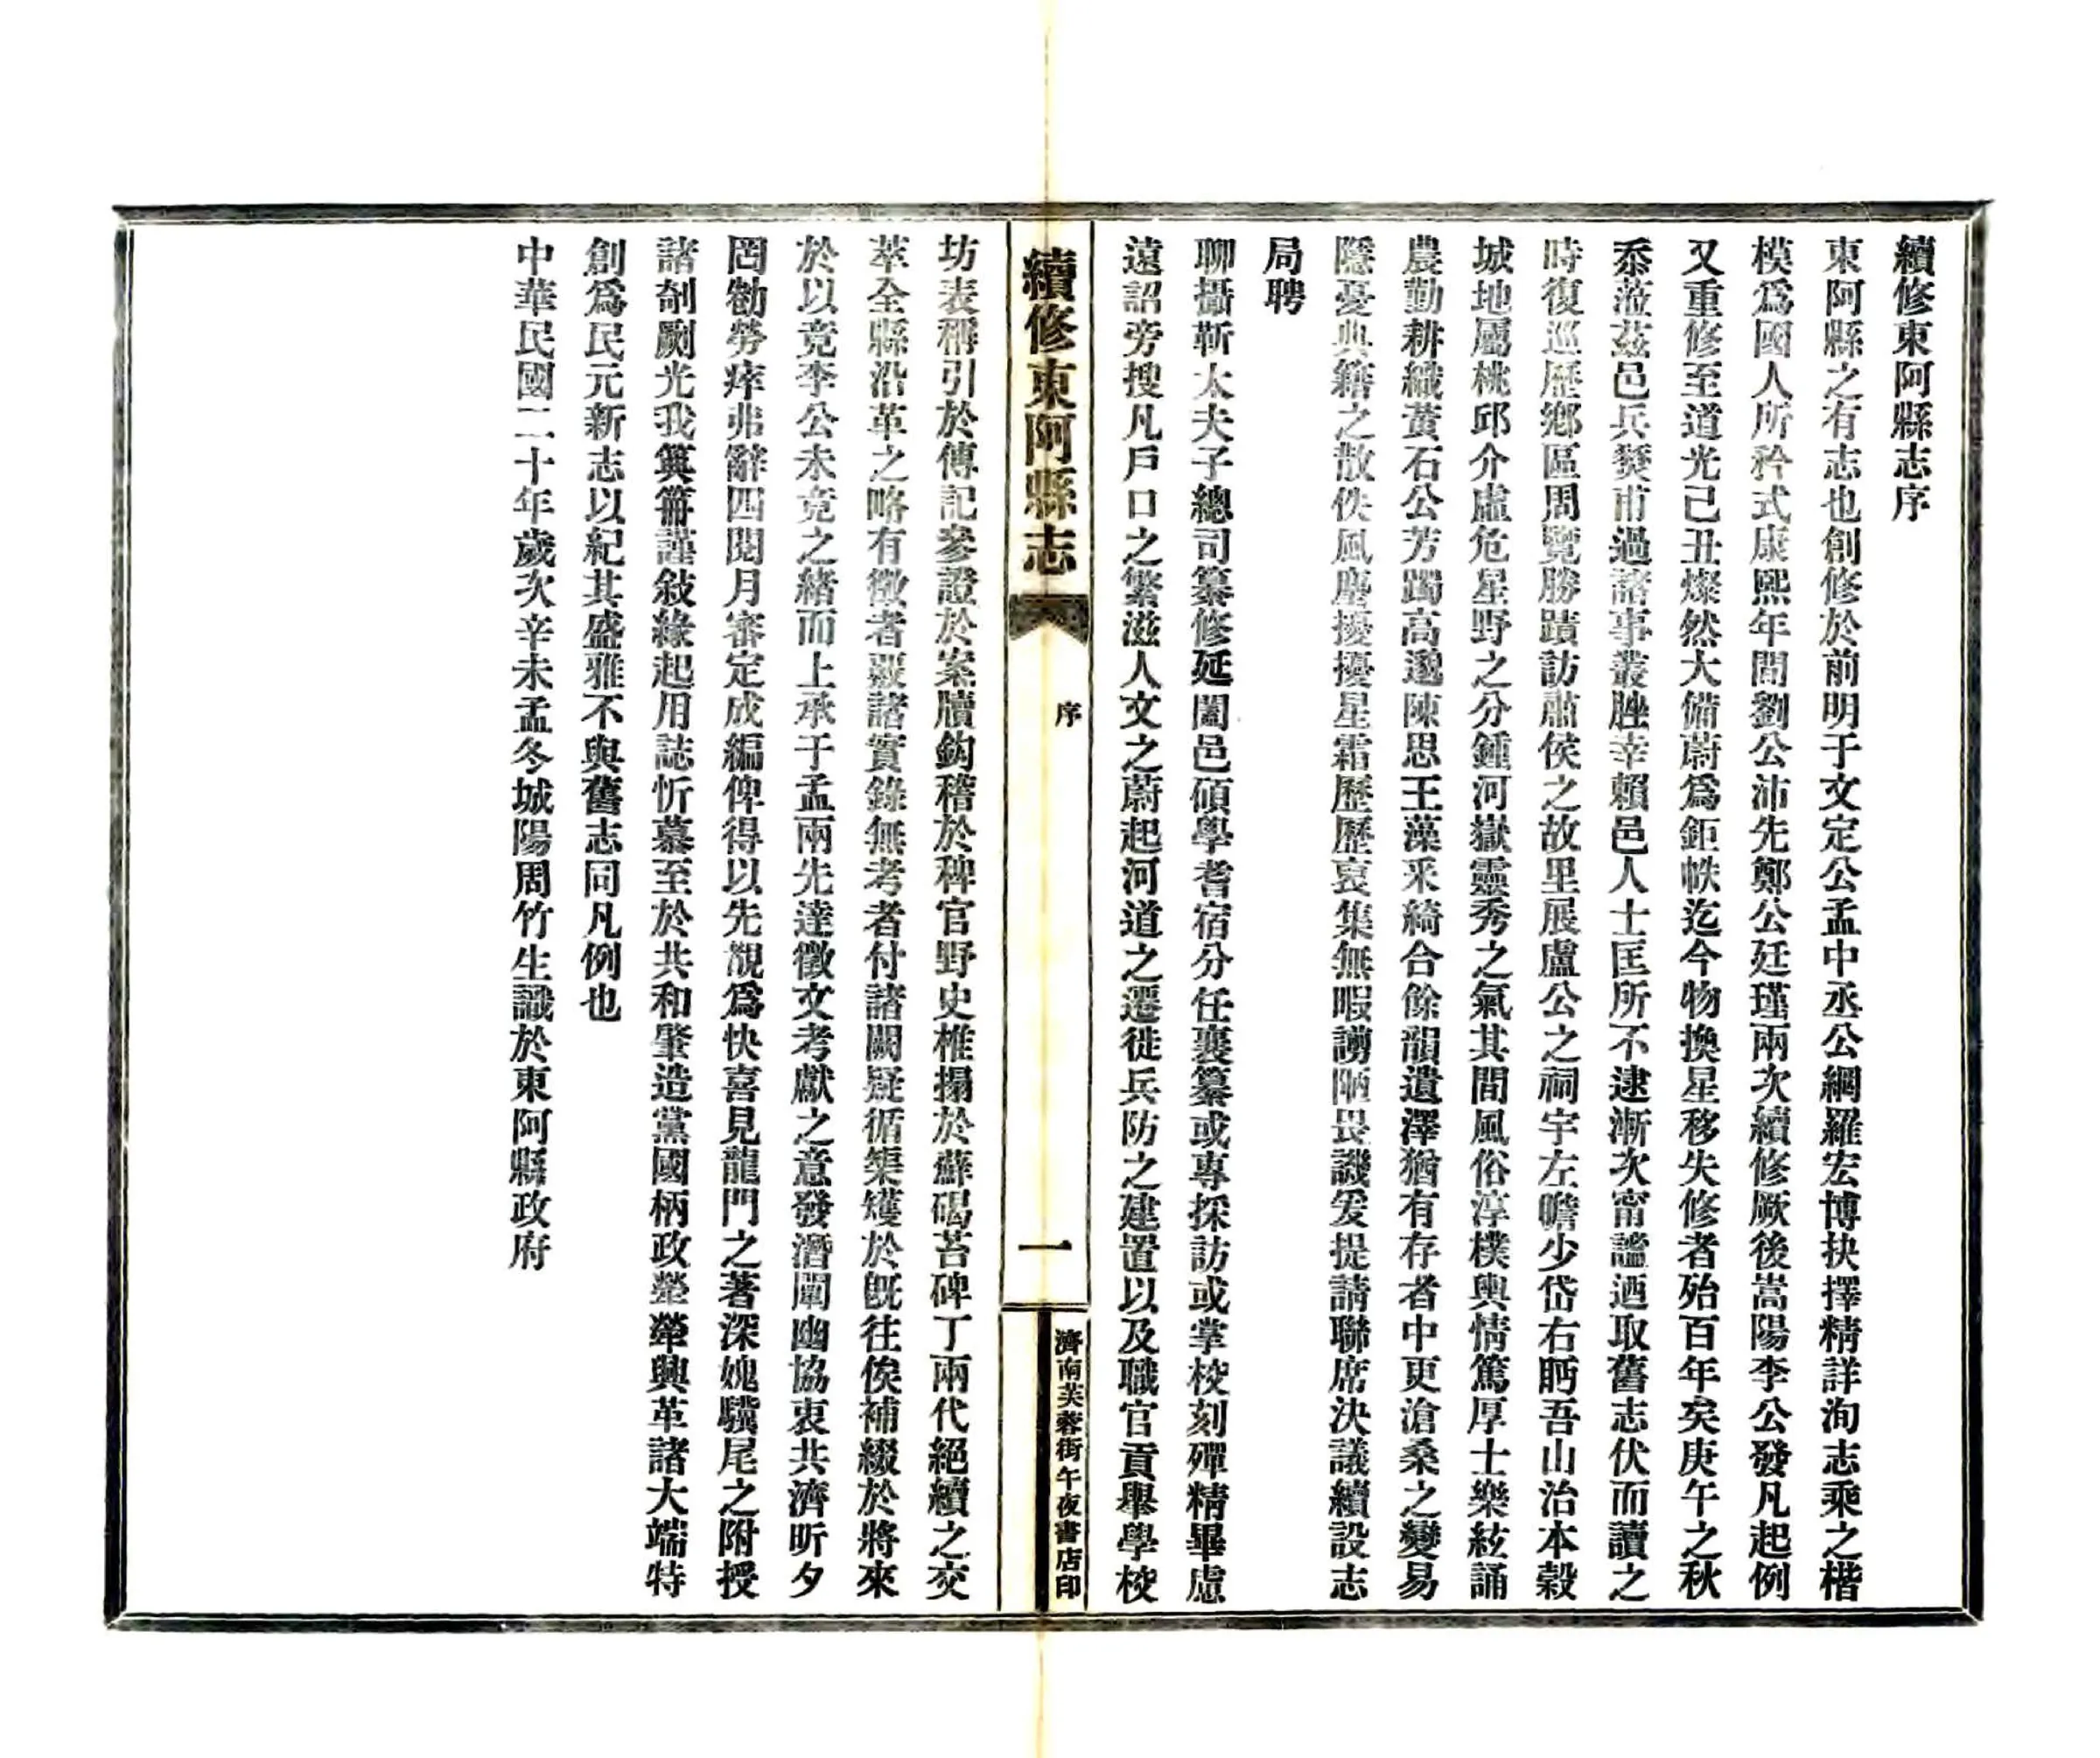 續修東阿縣志序
東阿縣之有志也創修於前明于文定公孟中丞公網羅宏博抉擇精詳洵志乘之楷
模爲國人所矜式康熙年間劉公沛先鄭公廷瑾兩次續修厥後嵩陽李公發凡起例
又重修至道光己丑燦然大備蔚爲鉅帙迄今物換星移失修者殆百年矣庚午之秋
忝蒞茲邑兵燹甫過諸事叢脞幸賴邑人士匡所不逮漸次甯謐迺取舊志伏而讀之
時復巡歷鄉區周覽勝蹟訪蕭侯之故里展盧公之祠宇左瞻少岱右眄吾山治本穀
城地屬桃邱介虛危星野之分鍾河嶽靈秀之氣其間風俗淳樸輿情篤厚士樂絃誦
農勤耕織黃石公芳躅高邈陳思王藻釆綺合餘韻遺澤猶有存者中更滄桑之變易
隱憂典籍之散佚風塵擾擾星霜歷歷裒集無暇譾陋畏譏爰提請聯席決議續設志
局聘
聊攝靳太夫子總司纂修延闔邑碩學耆宿分任襄纂或專採訪或掌校刻殫精畢慮
遠詔旁搜凡戶口之繁滋人文之蔚起河道之遷徙兵防之建置以及職官貢舉學校
續修東阿縣志
序
一
濟南芙蓉街午夜書店印
坊表稱引於傳記參證於案牘鈎稽於稗官野史椎搨於蘚碣苔碑丁兩代絕續之交
萃全縣沿革之略有徵者覈諸實錄無考者付諸闕疑循榘矱於旣往俟補綴於將來
於以竞李公未竞之緒而上承于孟兩先達徵文考獻之意發潛闡幽協衷共濟昕夕
罔勌勞瘁弗辭四閱月審定成編俾得以先覩爲快喜見龍門之著深媿驥尾之附授
諸剞劂光我簨簿謹敍緣起用誌忻慕至於共和肇造黨國柄政犖犖興革諸大端特
創爲民元新志以紀其盛雅不與舊志同凡例也
中華民國二十年歲次辛未孟冬城陽周竹生識於東阿縣政府